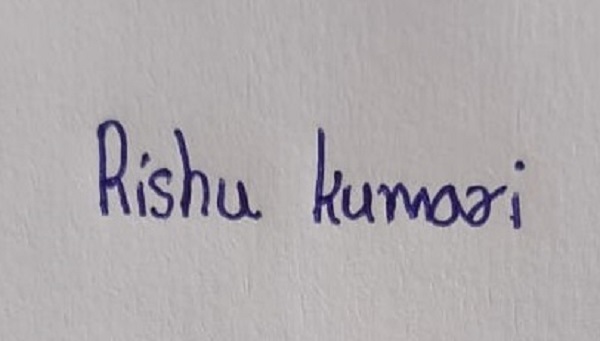 Rishu kumari